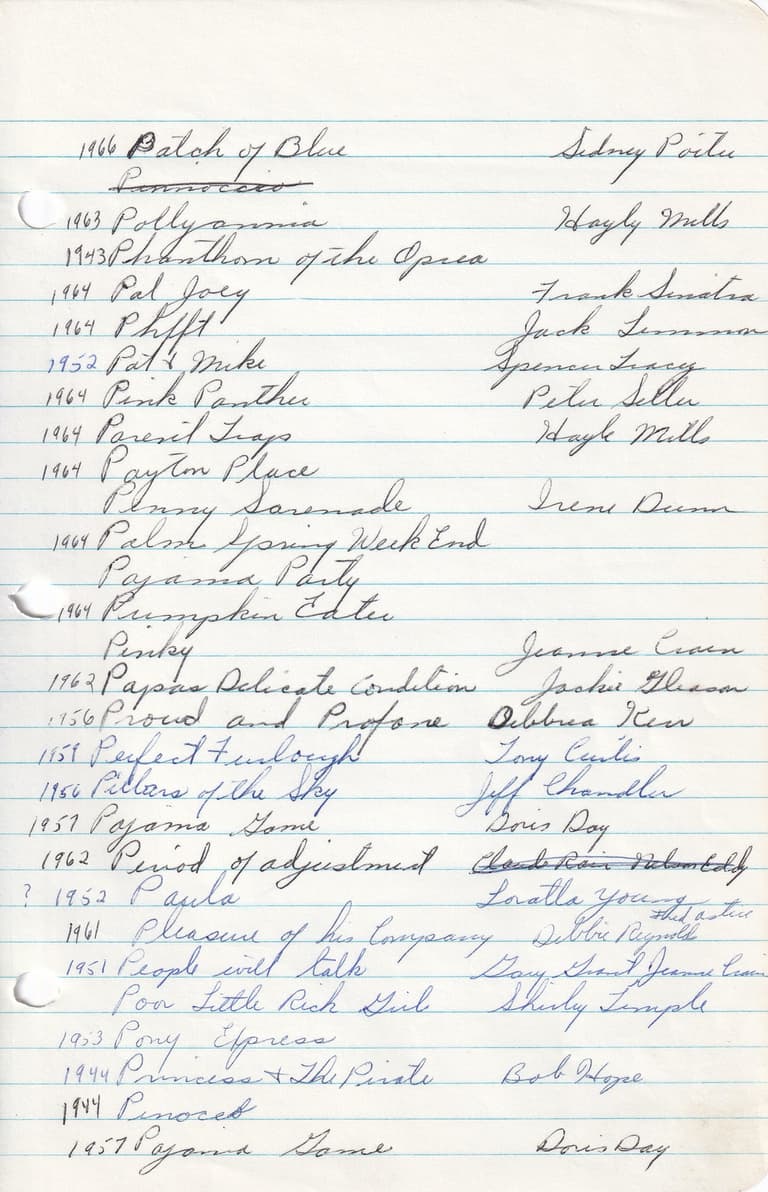 1966 Patch of Blue Sidney Poitie
Pannoccio
1963 Pollyannia Hayly Mills
1943 Phanthom of the Oprea
1964 Pal Joey Frank Sinatra
1964 Phfft Jack Lemmon
1952 Pat & Mike Spencer Tracy
1964 Pink Panther Peter Seller
1964 Parent Traps Hayle Mills
1964 Payton Place
Penny Sarenade Irene Dunn
1964 Palm Spring Week End
Pajama Party
1964 Pumpkin Eater
Pinky Jeanne Crain
1962 Papas Delicate Condition Jackie Gleason
1956 Proud and Profane Debbrea Kerr
1959 Perfect Furlough Tony Curtis
1956 Pillars of the Sky Jeff Chandler
1957 Pajama Game Doris Day
1962 Period of adjustment Claude Rain Nelson Eddy
? 1952 Paula Loratta Young
1961 Pleasure of his Company Debbie Reynold Fred astire
1951 People will talk Gary Grant Jeanne Crain
Poor Little Rich Girl Shirly Temple
1953 Pony Express
1944 Princess & The Pirate Bob Hope
1944
1957 Pajama Game Doris Day